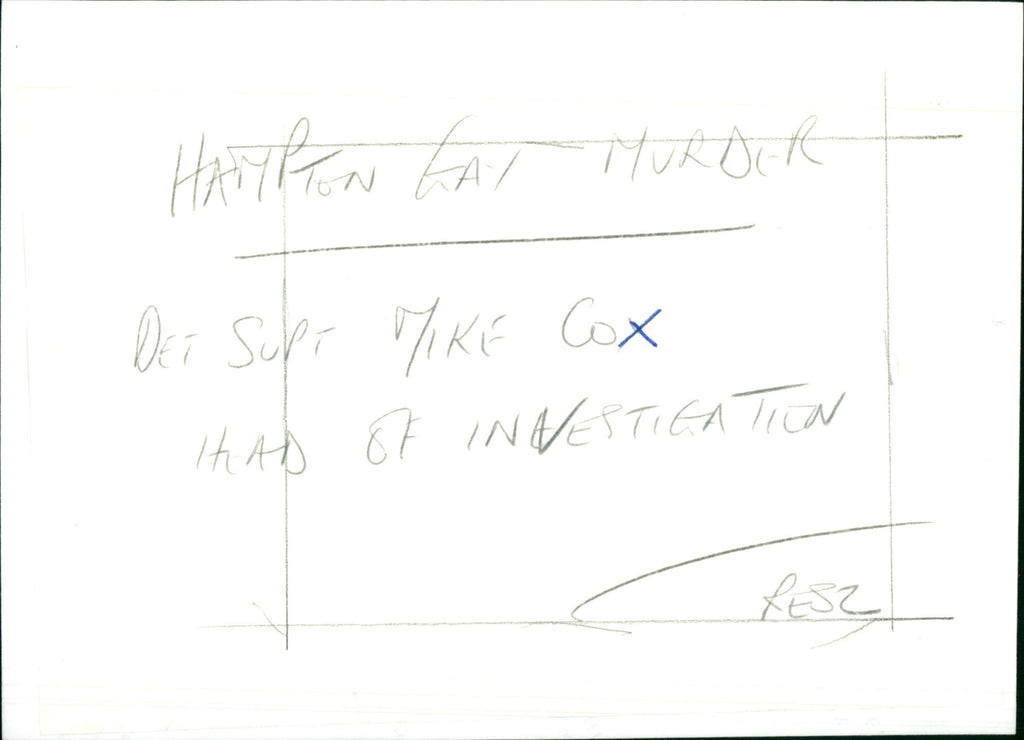 HAMPTON GAY MURDER
DET SUPT MIKE COX
HEAD OF INVESTIGATION